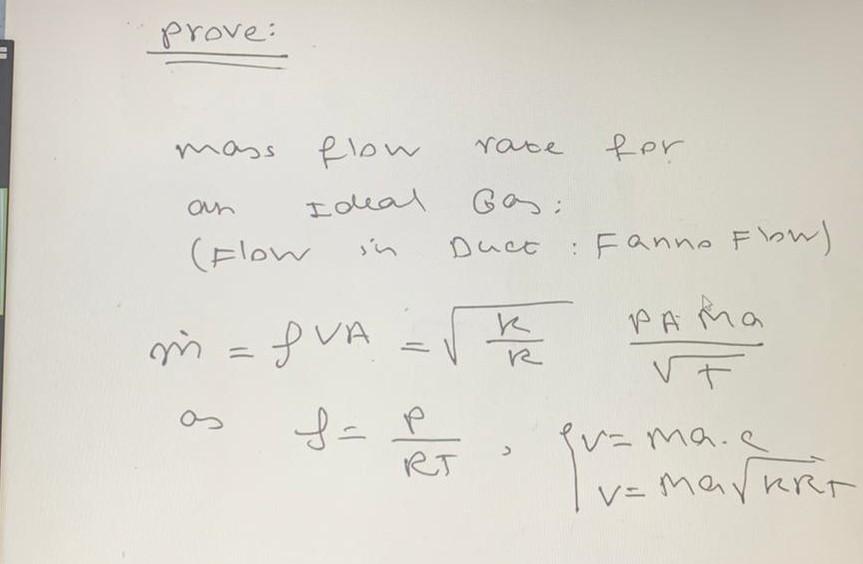 Prove:
mass flow rate for
an Ideal Gas:
(Flow in Duct : Fanno Flow)
ṁ = ρVA = √(k/R) PAMa/√T
as ρ = P/RT , { V = Ma.c
V = Ma√kRT